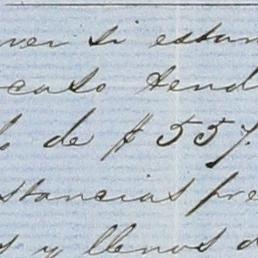 ver si estan
caso tend
o de $ 557.
stancias pre
s y llenos d